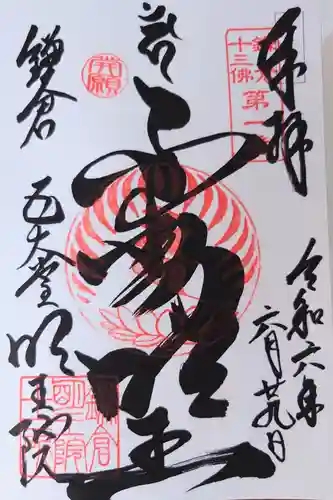 奉拝
令和六年
六月廿九日
鎌倉
十三佛
第一番
不動明王
発願
鎌倉
五大堂
明王院
鎌倉
明王院